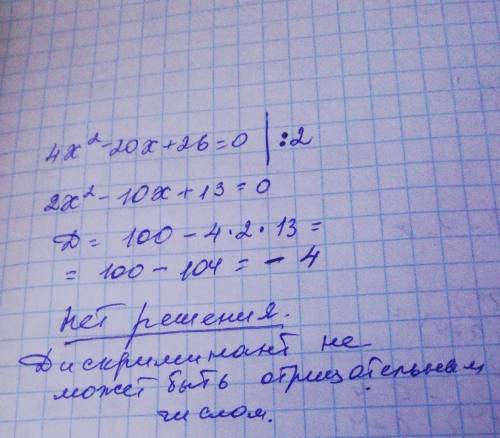 4x²-20x+26=0 | :2
2x²-10x+13=0
D= 100-4·2·13=
= 100-104=-4
Нет решения.
Дискриминант не
может быть отрицательным
числом.